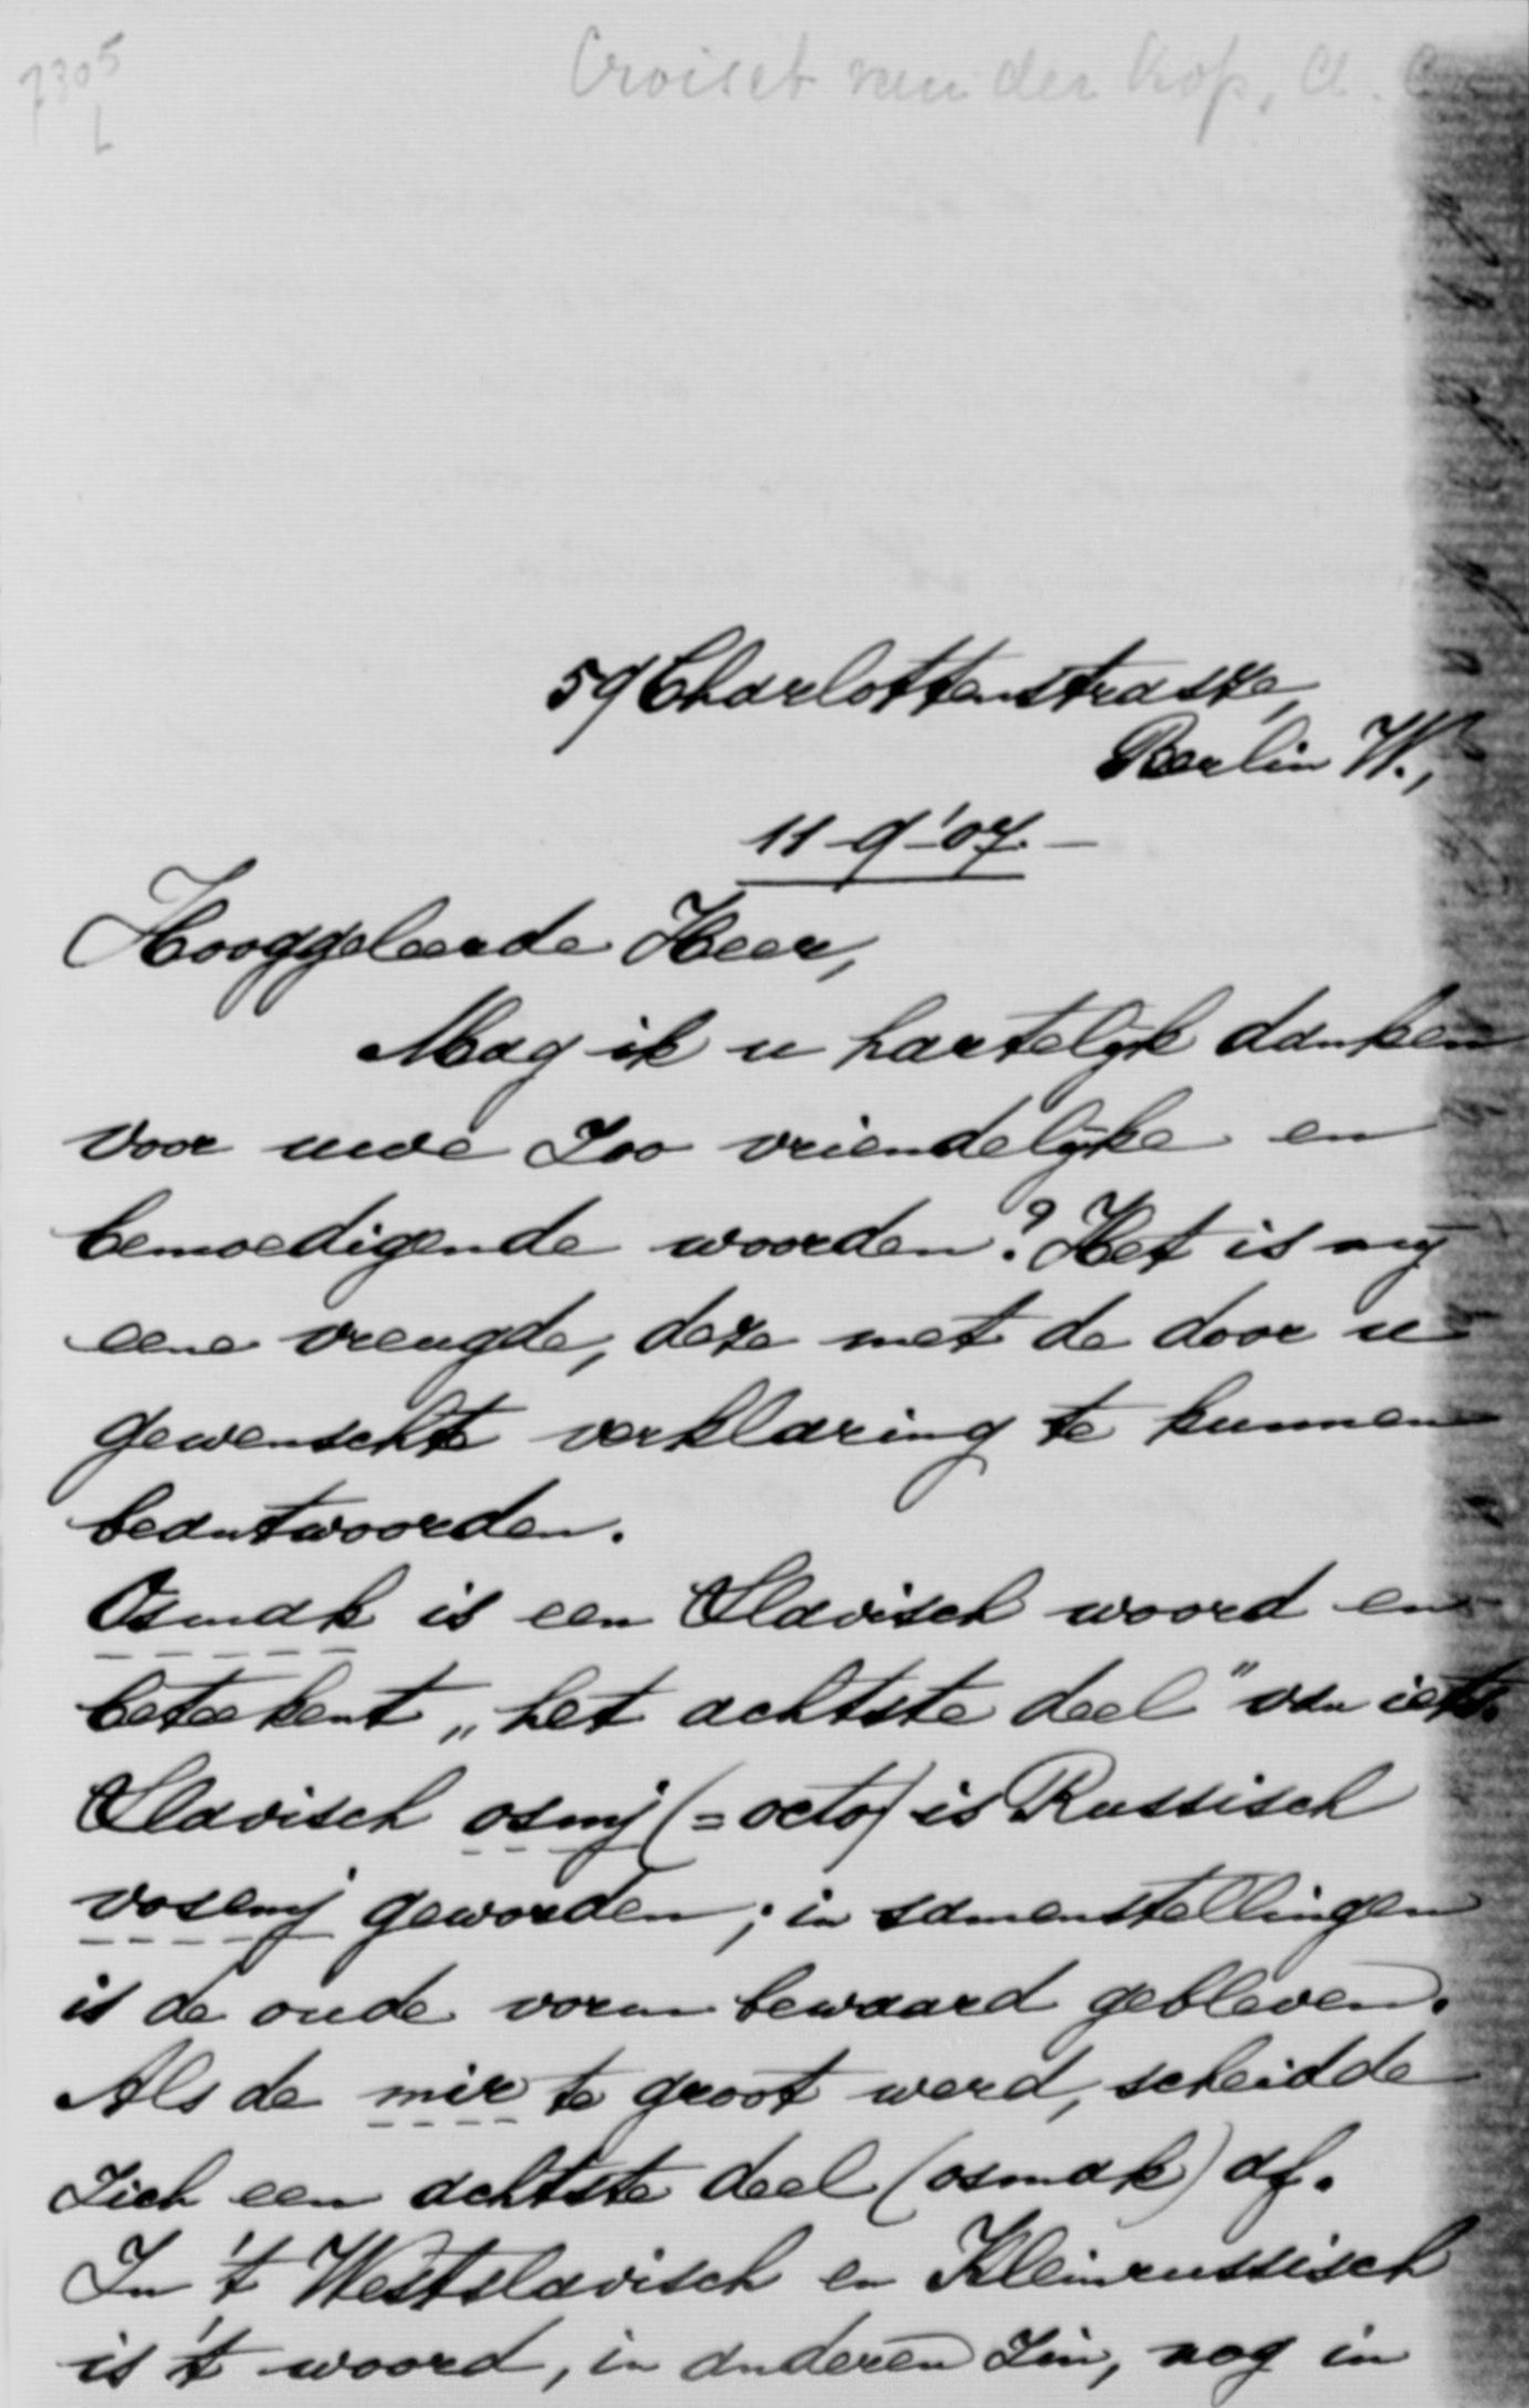 7305
L
Croiset van der Kop, A. C.
59 Charlottenstrasze,
Berlin W.,
11-9-'07.—
Hooggeleerde Heer,
Mag ik u hartelijk danken
voor uwe zoo vriendelijke en
bemoedigende woorden? Het is mij
eene vreugde, deze met de door u
gewenschte verklaring te kunnen
beantwoorden.
Osmak is een Slavisch woord en
beteekent „het achtste deel" van iets.
Slavisch osmj (=octo) is Russisch
vosemj geworden; in samenstellingen
is de oude vorm bewaard gebleven.
Als de mir te groot werd, scheidde
zich een achtste deel (osmak) af.
In 't Westslavisch en Kleinrussisch
is 't woord, in anderen zin, nog in